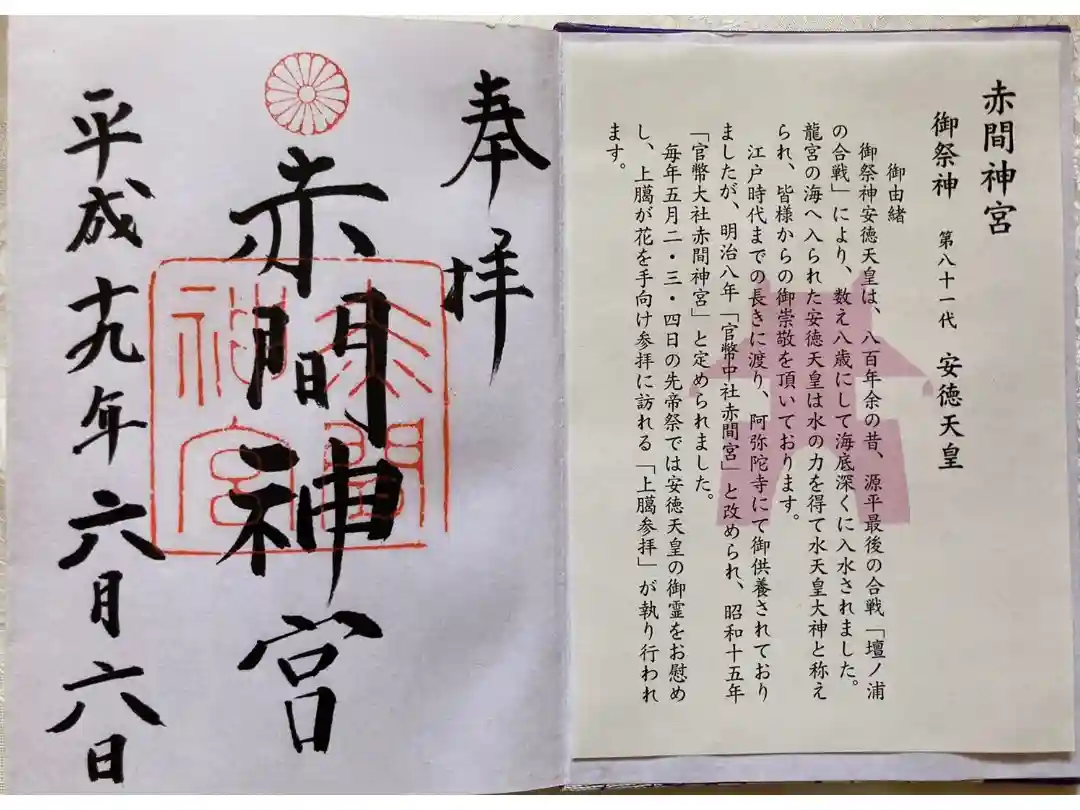 赤間神宮
御祭神 第八十一代 安徳天皇
御由緒
御祭神安徳天皇は、八百年余の昔、源平最後の合戦「壇ノ浦
の合戦」により、数え八歳にして海底深くに入水されました。
龍宮の海へ入られた安徳天皇は水の力を得て水天皇大神と称え
られ、皆様からの御崇敬を頂いております。
江戸時代までの長きに渡り、阿弥陀寺にて御供養されており
ましたが、明治八年「官幣中社赤間宮」と改められ、昭和十五年
「官幣大社赤間神宮」と定められました。
毎年五月二・三・四日の先帝祭では安徳天皇の御霊をお慰め
し、上臈が花を手向け参拝に訪れる「上臈参拝」が執り行われ
ます。
奉拝
赤間神宮
赤間
神宮
平成十九年六月六日